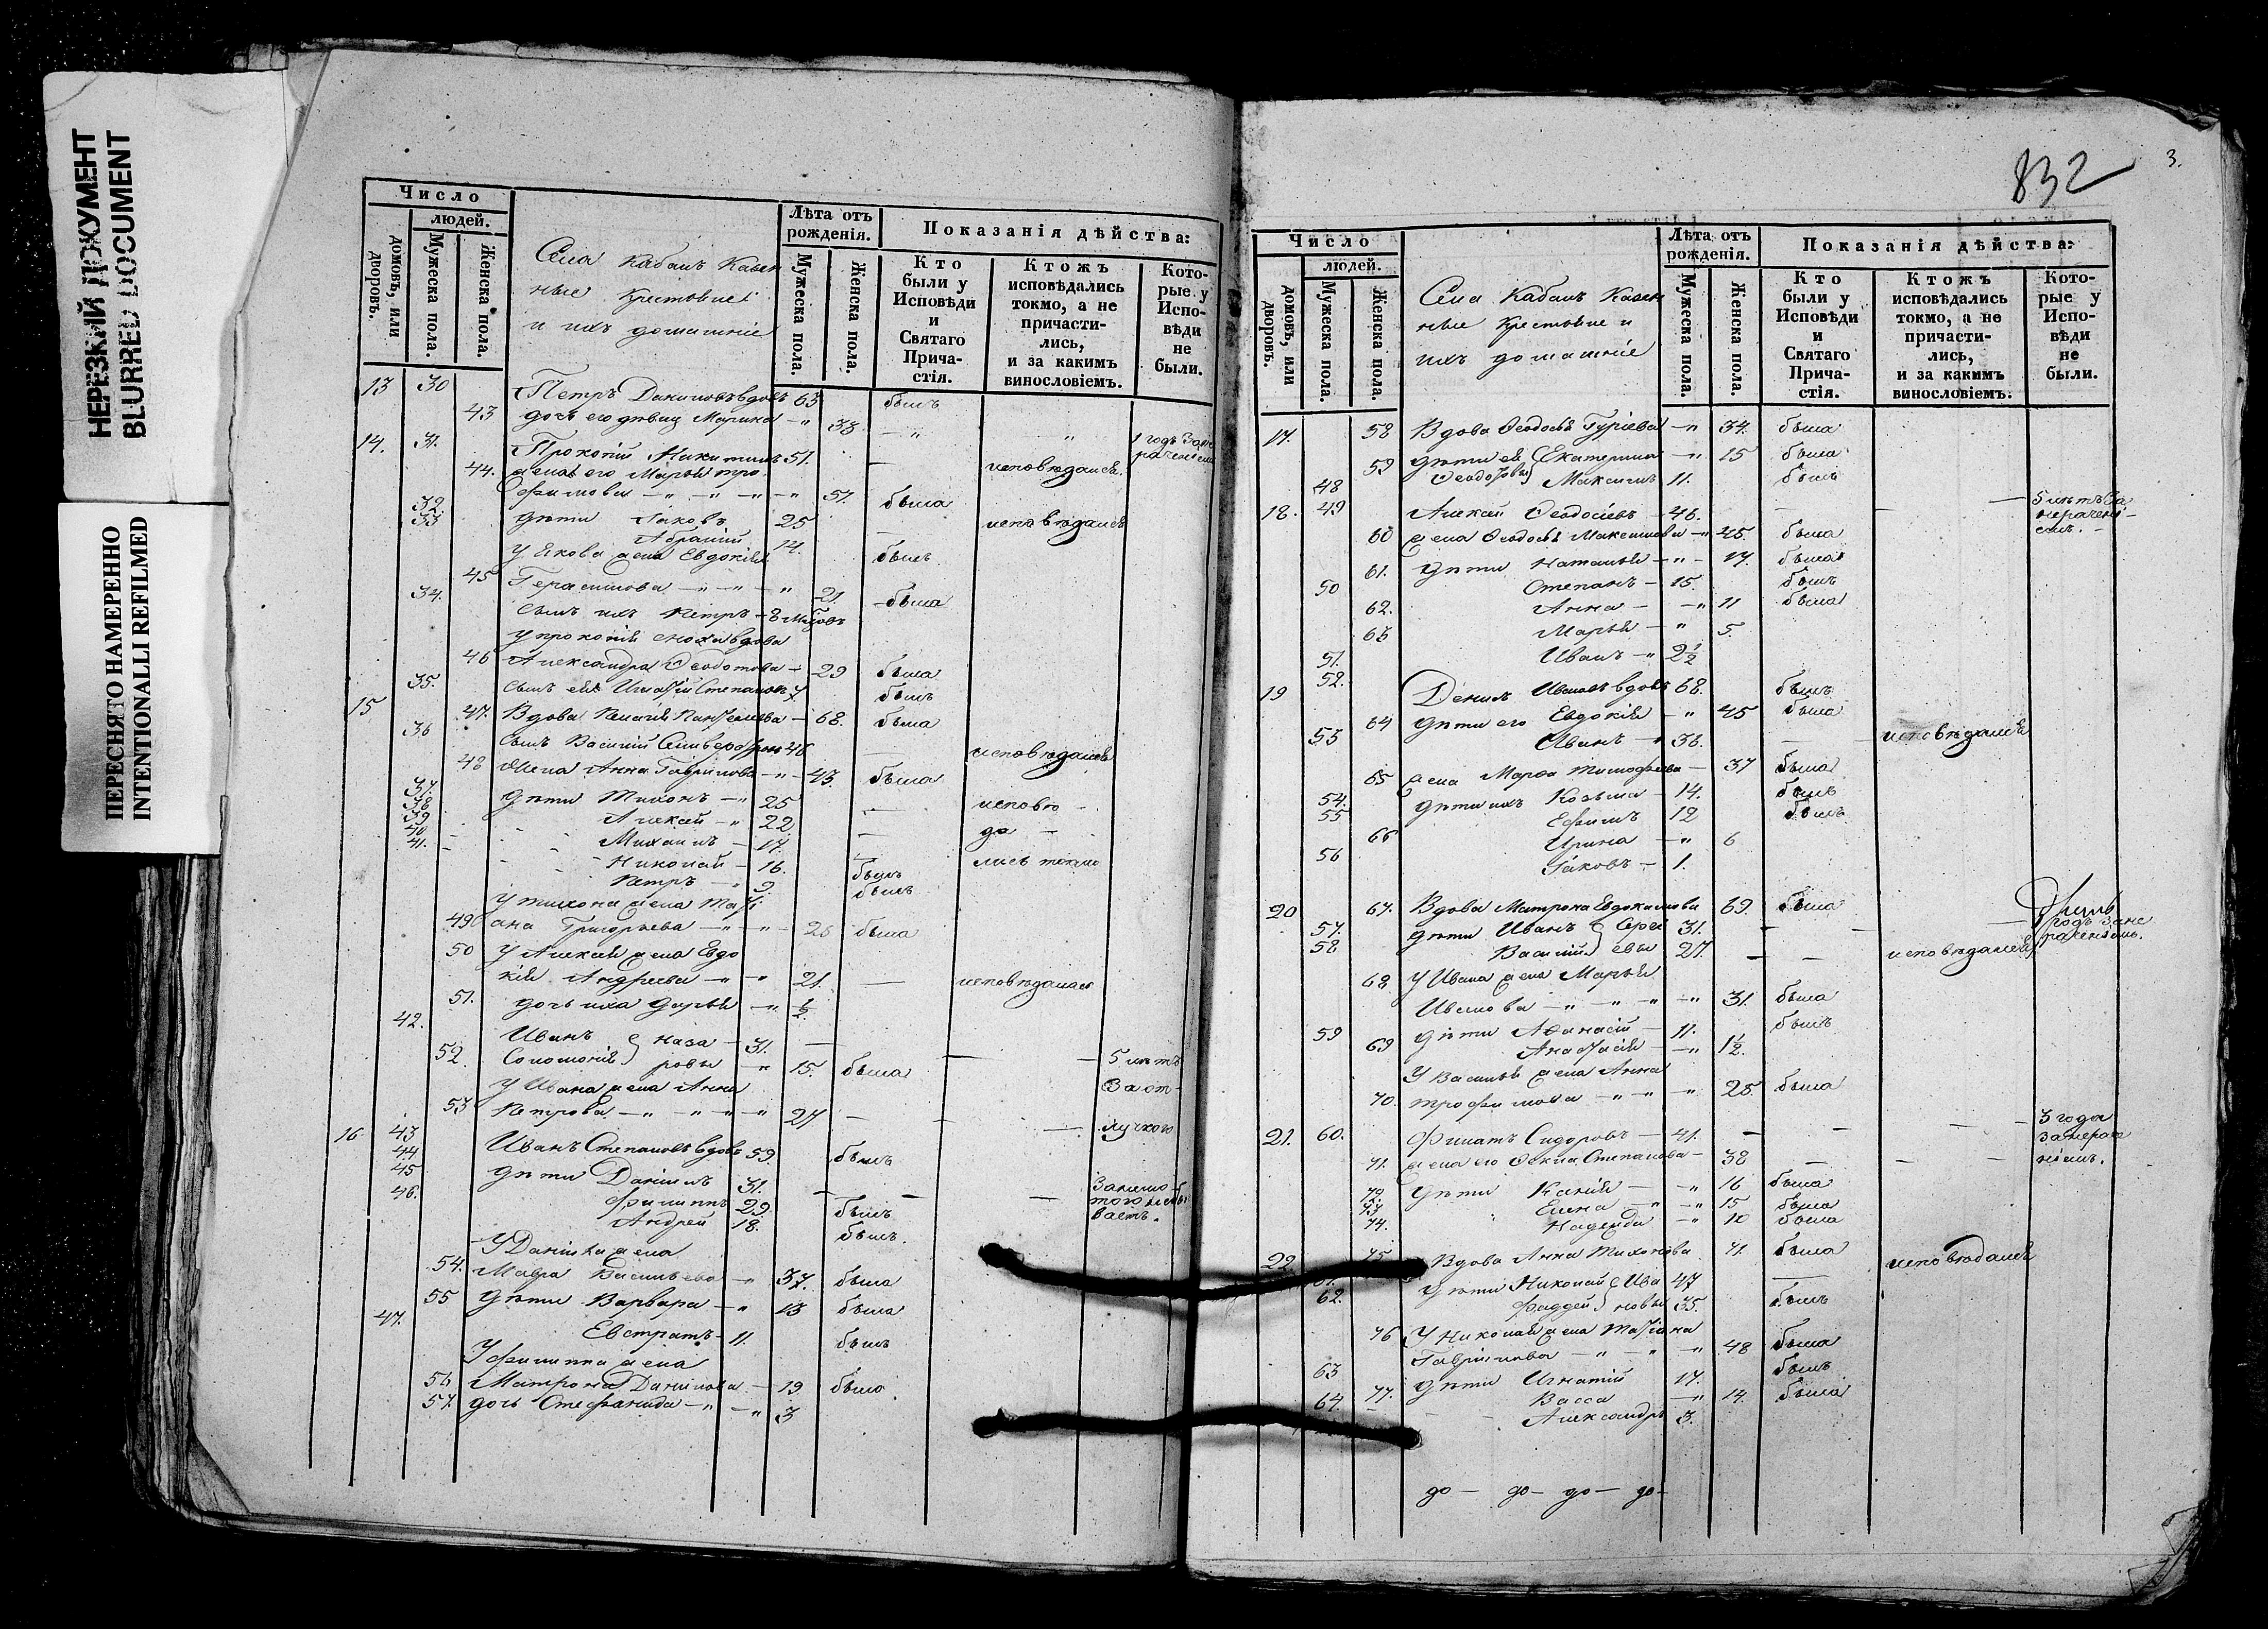 НЕРЕЗКИЙ ДОКУМЕНТ
BLURRED DOCUMENT
ПЕРЕСНЯТО НАМЕРЕННО
INTENTIONALLI REFILMED
Число
людей.
домовъ, или дворовъ.
Мужеска пола.
Женска пола.
Села Кабанъ Казен
ные Крестьяне
и ихъ домашніе
Лѣта отъ рожденія.
Мужеска пола.
Женска пола.
Показанія дѣйства:
Кто были у Исповѣди и Святаго Причастія.
Ктожъ исповѣдались токмо, а не причастились, и за какимъ винословіемъ.
Которые у Исповѣди не были.
13 30 Петръ вдовъ 63 былъ
43 дочь его дѣвиц Марина 33 "
14. 31. Прокопій Никитинъ 51. — исповѣдался 1 годъ
44. жена его Марья Тро
фимова 51. была
32. дѣти Іаковъ 25 — исповѣдался
33 Абрамій 14. былъ
У Якова жена Евдокія
45 Герасимова 21. была
34. сынъ ихъ Петръ 8
у Прокопія сноха вдова
46 Александра Ѳеодотова 29 была
35. сынъ ея Степановъ 7 былъ
15 47. Вдова Пелагія 68. была
36 сынъ Василій 46 — исповѣдался
48 жена Анна Гаврилова 43. была
37. дѣти Тихонъ 25 — исповѣ
38 Алексей 22 — да
39 Михаилъ 17.
40 Николай 16. лись токмо
41. Петръ 9 былъ
У Тихона жена Тать
49 яна Григорьева была
50 У Алексея жена Евдо
кія Андреева 21. — исповѣдалась
51. дочь ихъ Дарья ½
42. Иванъ Наза 31. —
52. Соломонія ровы 15. была 5 лѣтъ
У Ивана жена Анна За от
53 Петрова 27 — лучкою
16 43 Иванъ Степановъ вдовъ 59. былъ
44 дѣти Даніилъ 31. —
45 Филиппъ 29 былъ
46. Андрей 18. былъ.
У Даніила жена
54. Мавра Васильева 37. была
55 дѣти Варвара 13 была
47. Евстратъ 11. былъ
У Филиппа жена
56 Матрона Данилова 19 была
57. дочь Стефанида 3
832
3.
Число
людей.
домовъ, или дворовъ.
Мужеска пола.
Женска пола.
Села Кабанъ Казен
ные Крестьяне и
ихъ домашніе
Лѣта отъ рожденія.
Мужеска пола.
Женска пола
Показанія дѣйства:
Кто были у Исповѣди и Святаго Причастія.
Ктожъ исповѣдались токмо, а не причастились, и за какимъ винословіемъ.
Которые у Исповѣди не были.
17. 58 Вдова Ѳеодосья Гуріева 34. была
59 дѣти ея Екатерина 15 была
48 Ѳеодоровы Максимъ 11. былъ
18. 49 Алексей Ѳеодосіевъ 46. — — 5 лѣтъ за
нерачені
емъ.
60 жена Ѳеодосья Максимова 45. была
61. дѣти Наталья 17. была
50 Степанъ 15. былъ
62. Анна 11 была
63 Марья 5.
51. Иванъ 2½
19 52. Денисъ Ивановъ вдовъ 68. былъ
64 дѣти его Евдокія 45 была
53 Иванъ 38. — исповѣдался
65 жена Марѳа Тимофеева 37 была
54. дѣти ихъ Козьма 14. былъ
55 Ефимъ 12 былъ
66 Ирина 6
56 Іаковъ 1.
20 67. Вдова Матрона Евдокимова 69. была
57. дѣти Иванъ Серге 31. — — годъ за не
раченіемъ.
58 Василій евы 27. — — исповѣдался
68 У Ивана жена Марья
Ивлиова 31. была
59 дѣти Аѳанасій 11. былъ
69 Анастасія 1½.
У Василья жена Анна
70. Трофимова 25. была
21. 60. Филатъ Сидоровъ 41. — — 3 года
за нераче
ніемъ.
71. жена его Ѳекла Степанова 38 — —
72. дѣти Ксенія 16 была
73 Елена 15 была
74. Надежда 10 была
22 75 Вдова Анна Тихонова 71. была
61. дѣти Николай Ива 47 — исповѣдался
62. Фаддей новы 35. былъ
76 У Николая жена Татіана
Гаврилова 48 была
63 дѣти Игнатій 17. былъ
77. Васса 14. была
64. Александръ 3.
до — до — до — до —